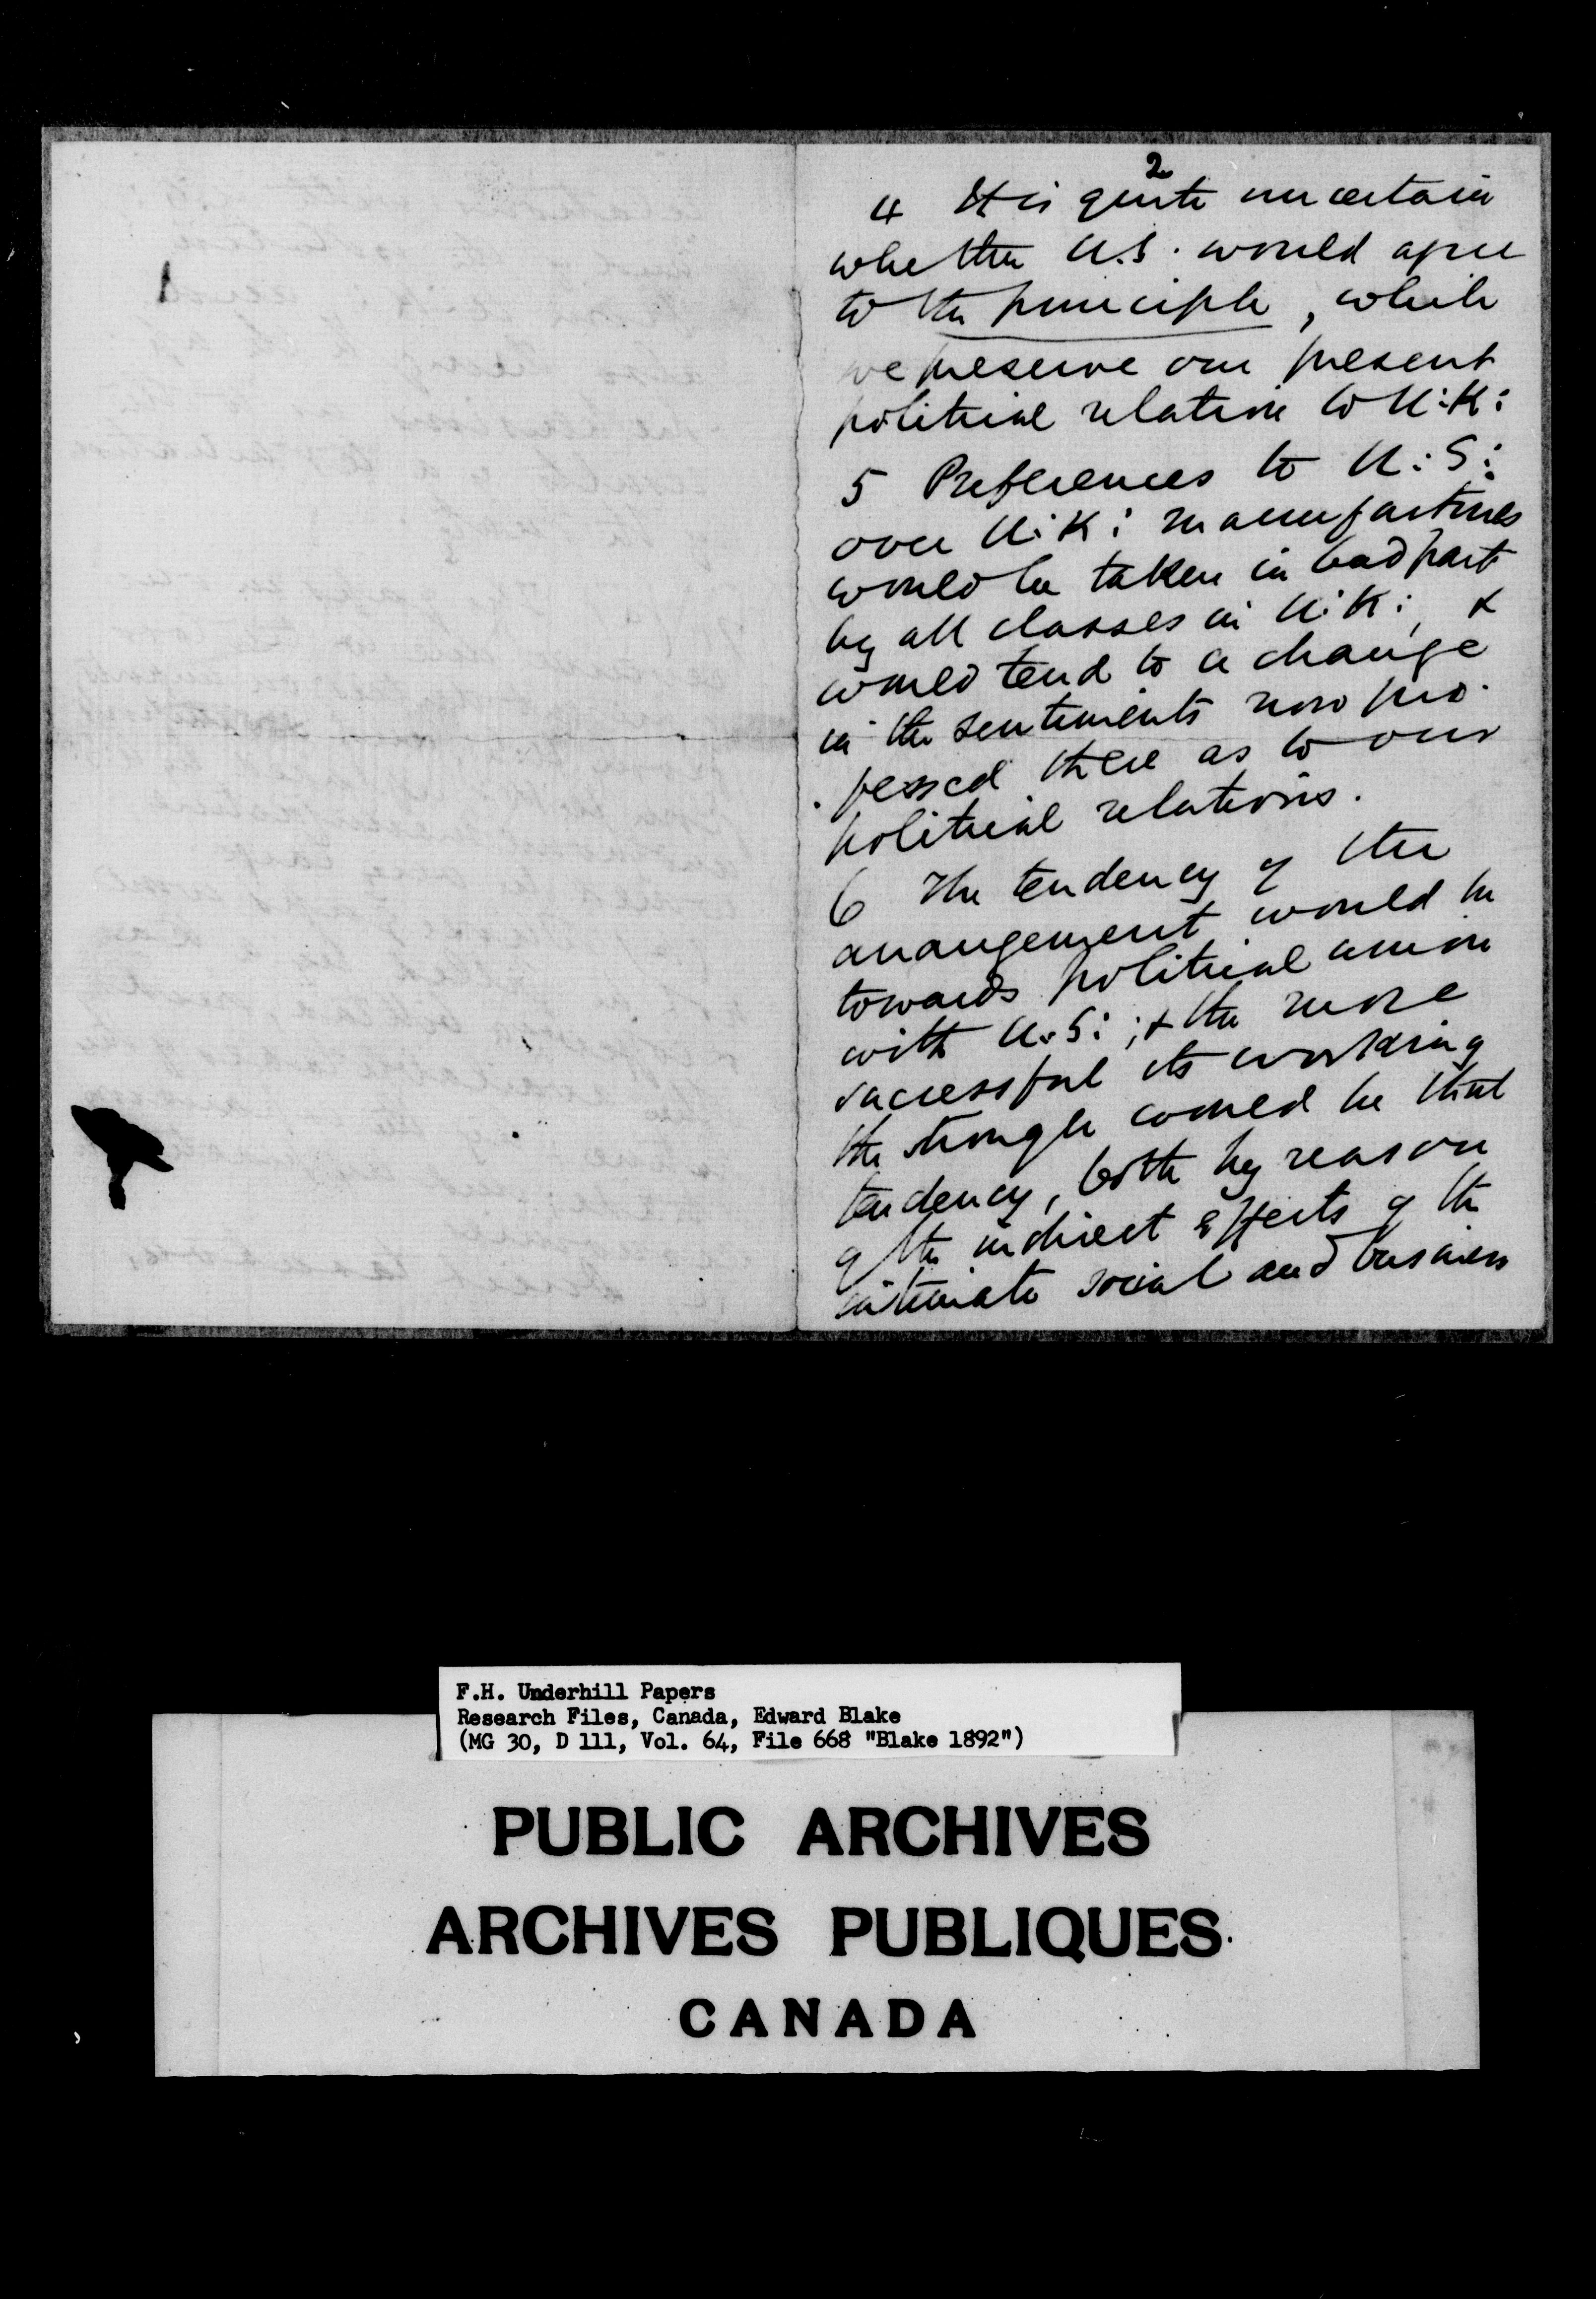 2
4 It is quite uncertain
whether U.S. would agree
to the principle, while
we preserve our present
political relation to U:K:
5 Preferences to U:S:
over U:K: manufactures
would be taken in bad part
by all classes in U:K:, &
would tend to a change
in the sentiments now pro-
-fessed there as to our
political relations.
6 The tendency of the
arrangement would be
towards political union
with U.S:; & the more
successful its working
the stronger would be that
tendency, both by reason
of the indirect effects of the
intimate social and business
F.H. Underhill Papers
Research Files, Canada, Edward Blake
(MG 30, D 111, Vol. 64, File 668 "Blake 1892")
PUBLIC ARCHIVES
ARCHIVES PUBLIQUES
CANADA